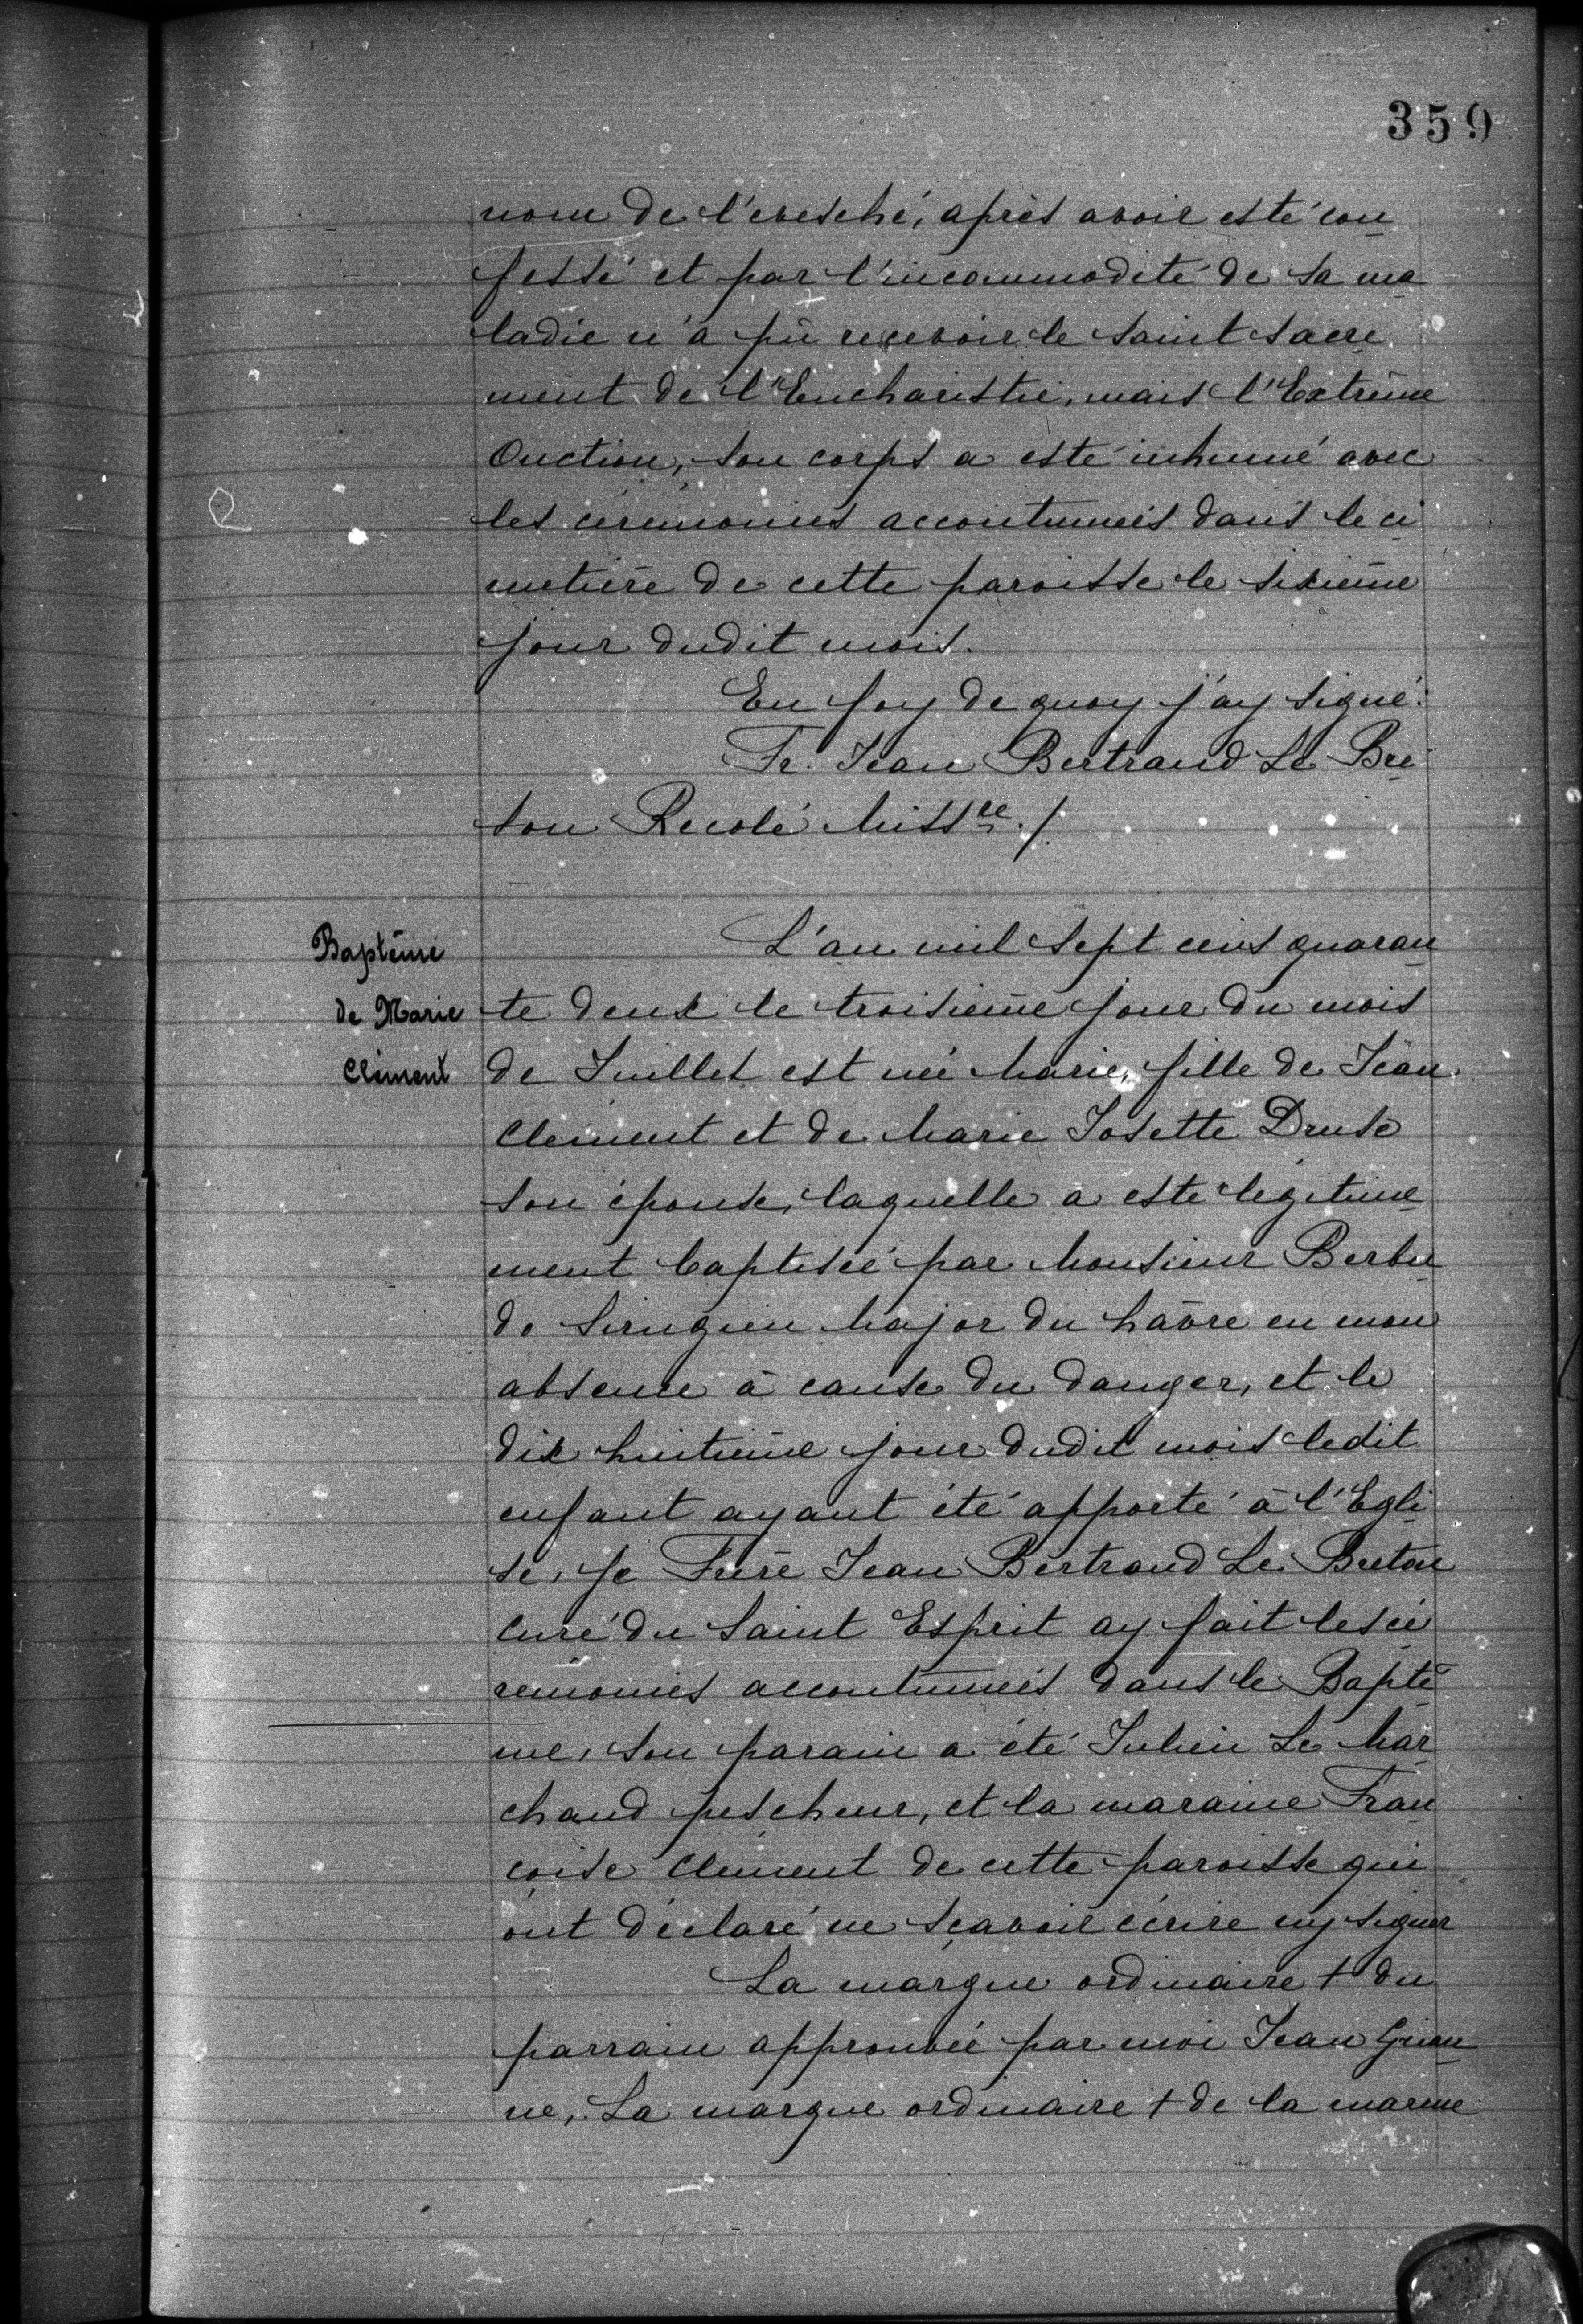 359
nom de l'evesché, après avoir esté con
fessé et par l'incommodité de sa ma
ladie n'a pû recevoir le saint sacre
ment de l'Eucharistie, mais l'Extrême
Onction, son corps a esté inhumé avec
les cérémonies accoutumées dans le ci
metière de cette paroisse le sixième
jour dudit mois.
En foy de quoy j'ay signé:
Fr. Jean Bertrand Le Bre
ton Recolé Missre./.
Baptême
de Marie
Clément
L'an mil sept cens quaran
te deux le troisième jour du mois
de Juillet est née Marie, fille de Jean
Clement et de Marie Josette Druse
son épouse, laquelle a esté légitime
ment baptisée par Monsieur Berbu
do Sirugien Major du hâvre en mon
absence à cause du danger, et le
dix huitième jour dudit mois ledit
enfant ayant été apporté à l'Egli
se, je Frère Jean Bertrand Le Breton
curé du Saint Esprit ay fait les cé
rémonies accoutumées dans le Baptê
me, son parain a été Julien Le Mar
chand pescheur, et la maraine Fran
çoise Clément de cette paroisse qui
ont déclaré ne sçavoir écrire ny signer
La marque ordinaire + du
parrain approuvée par moi Jean
ne, La marque ordinaire + de la